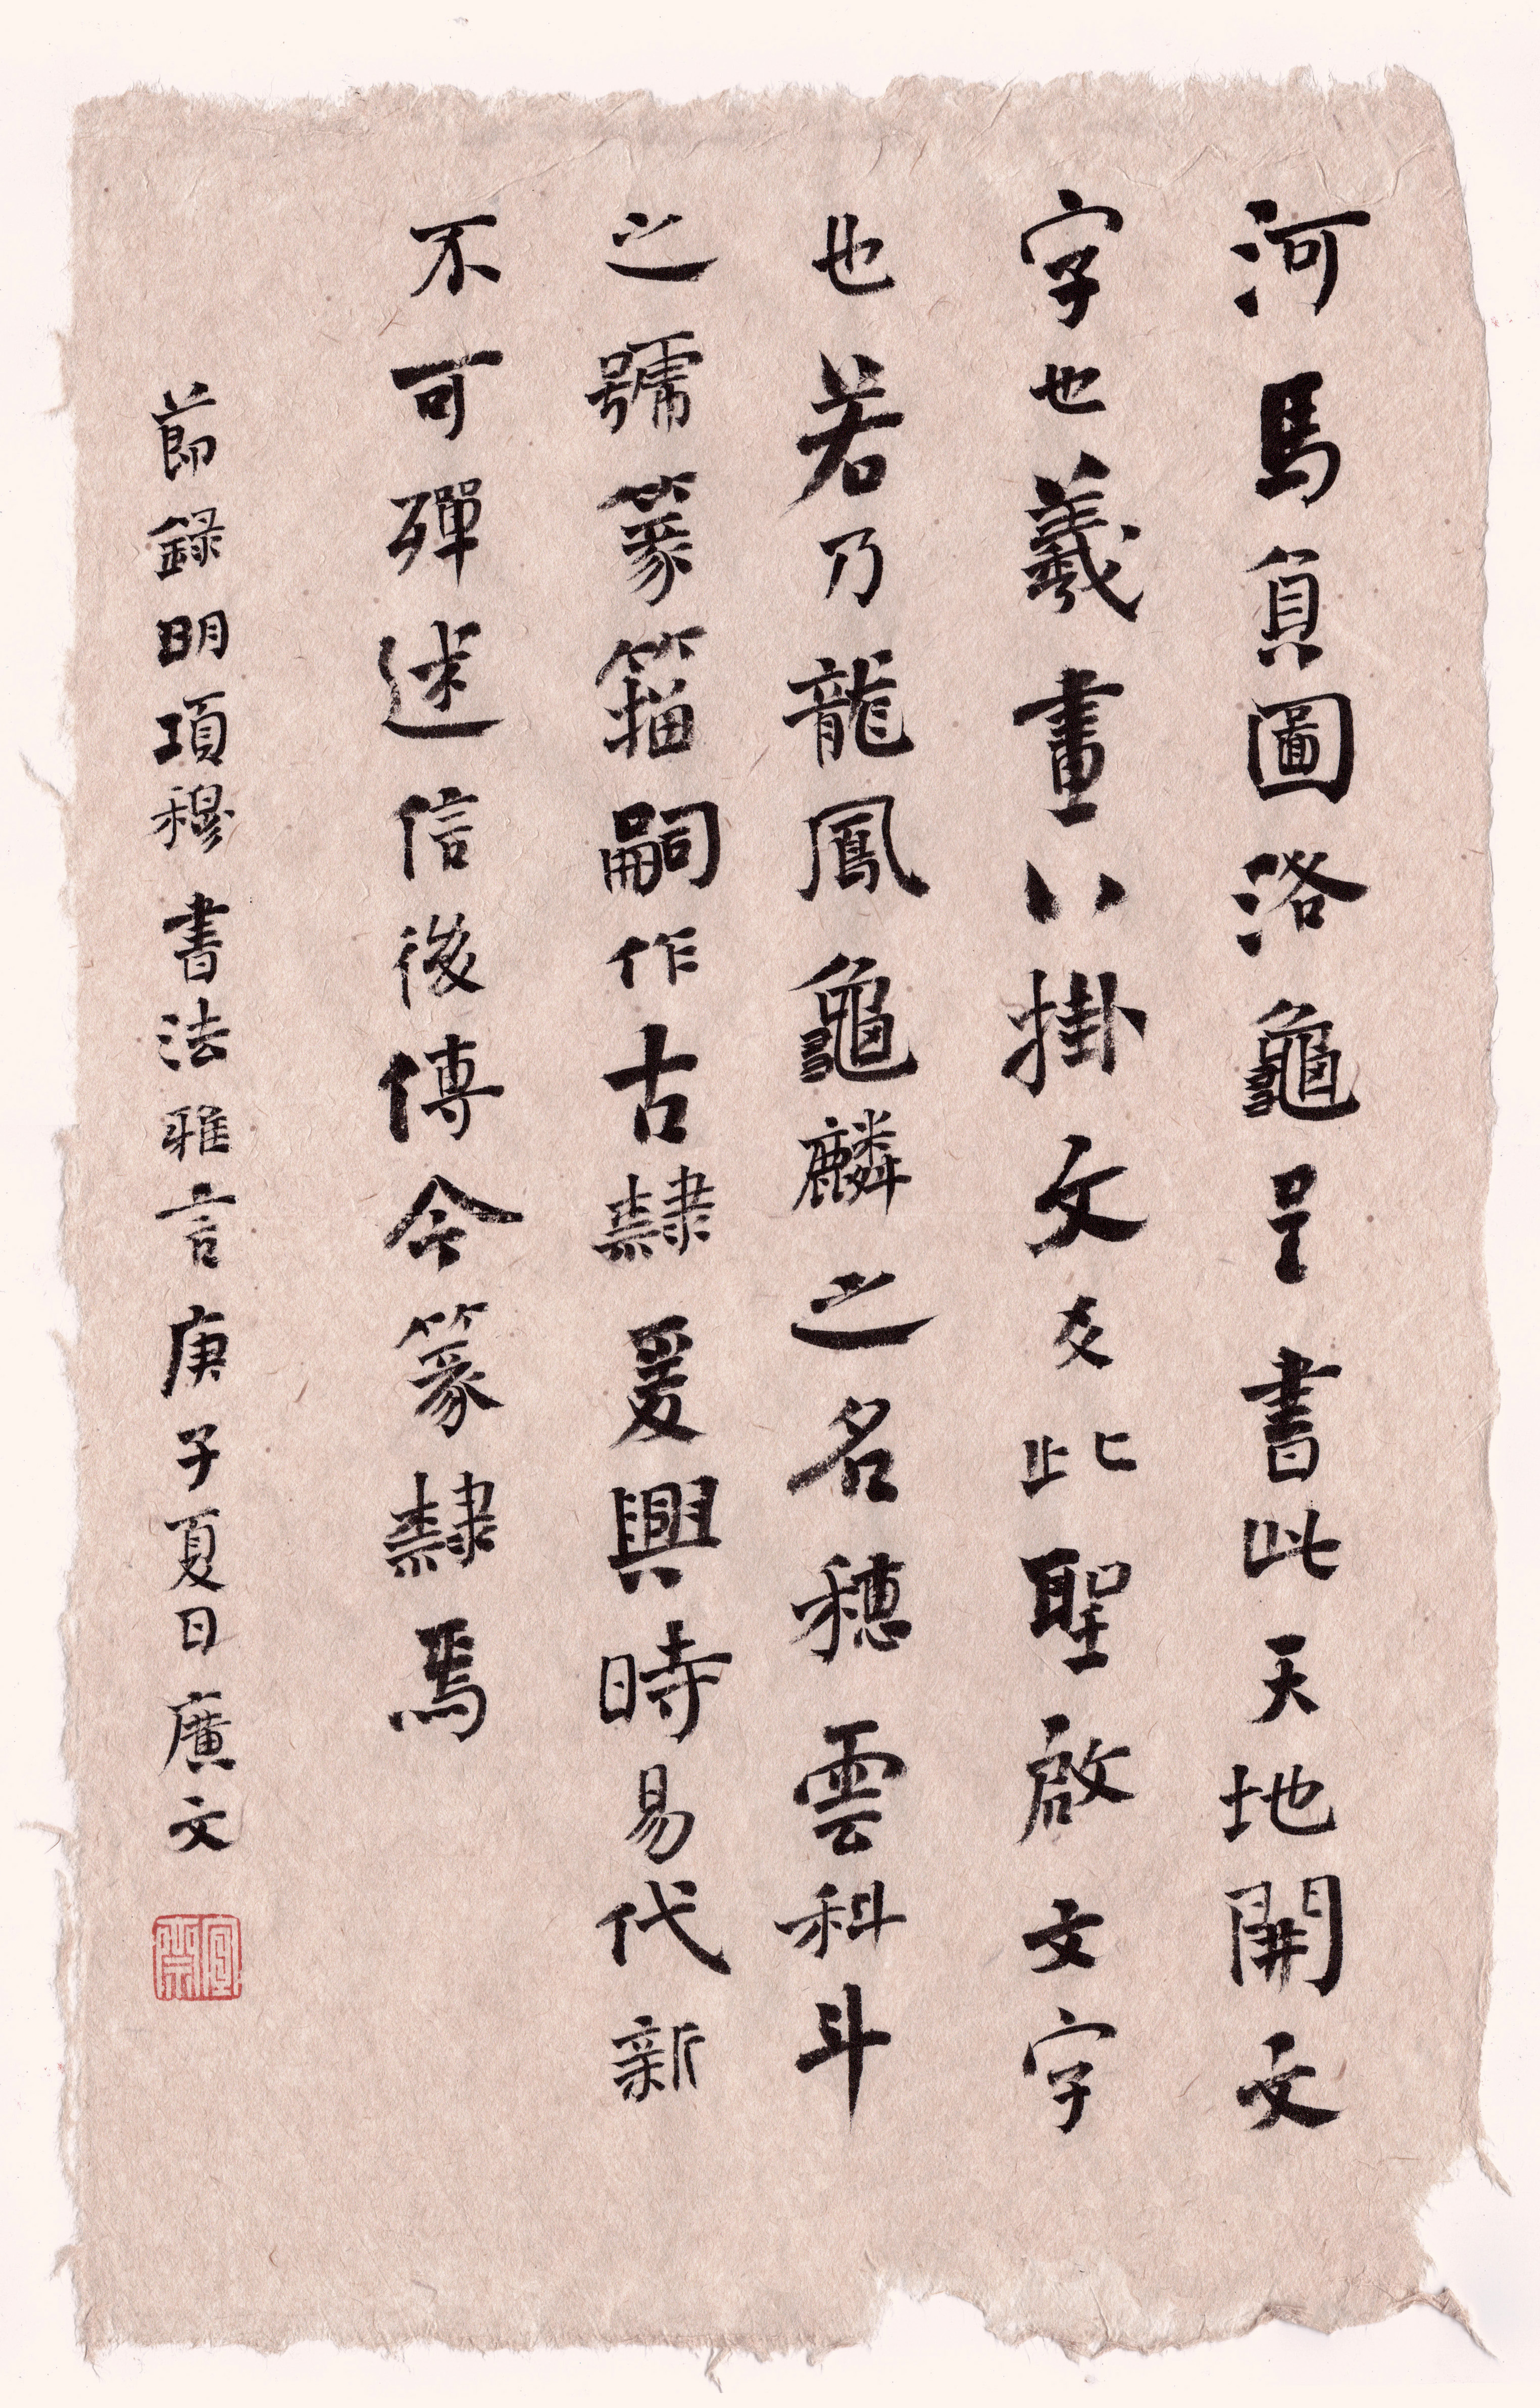 河馬負圖洛龜呈書此天地開文
字也羲畫八掛文爻此聖啟文字
也若乃龍鳳龜麟之名穗雲科斗
之號篆籀嗣作古隸爰興時易代新
不可殫述信後傳今篆隸焉
節錄明項穆書法雅言庚子夏日廣文